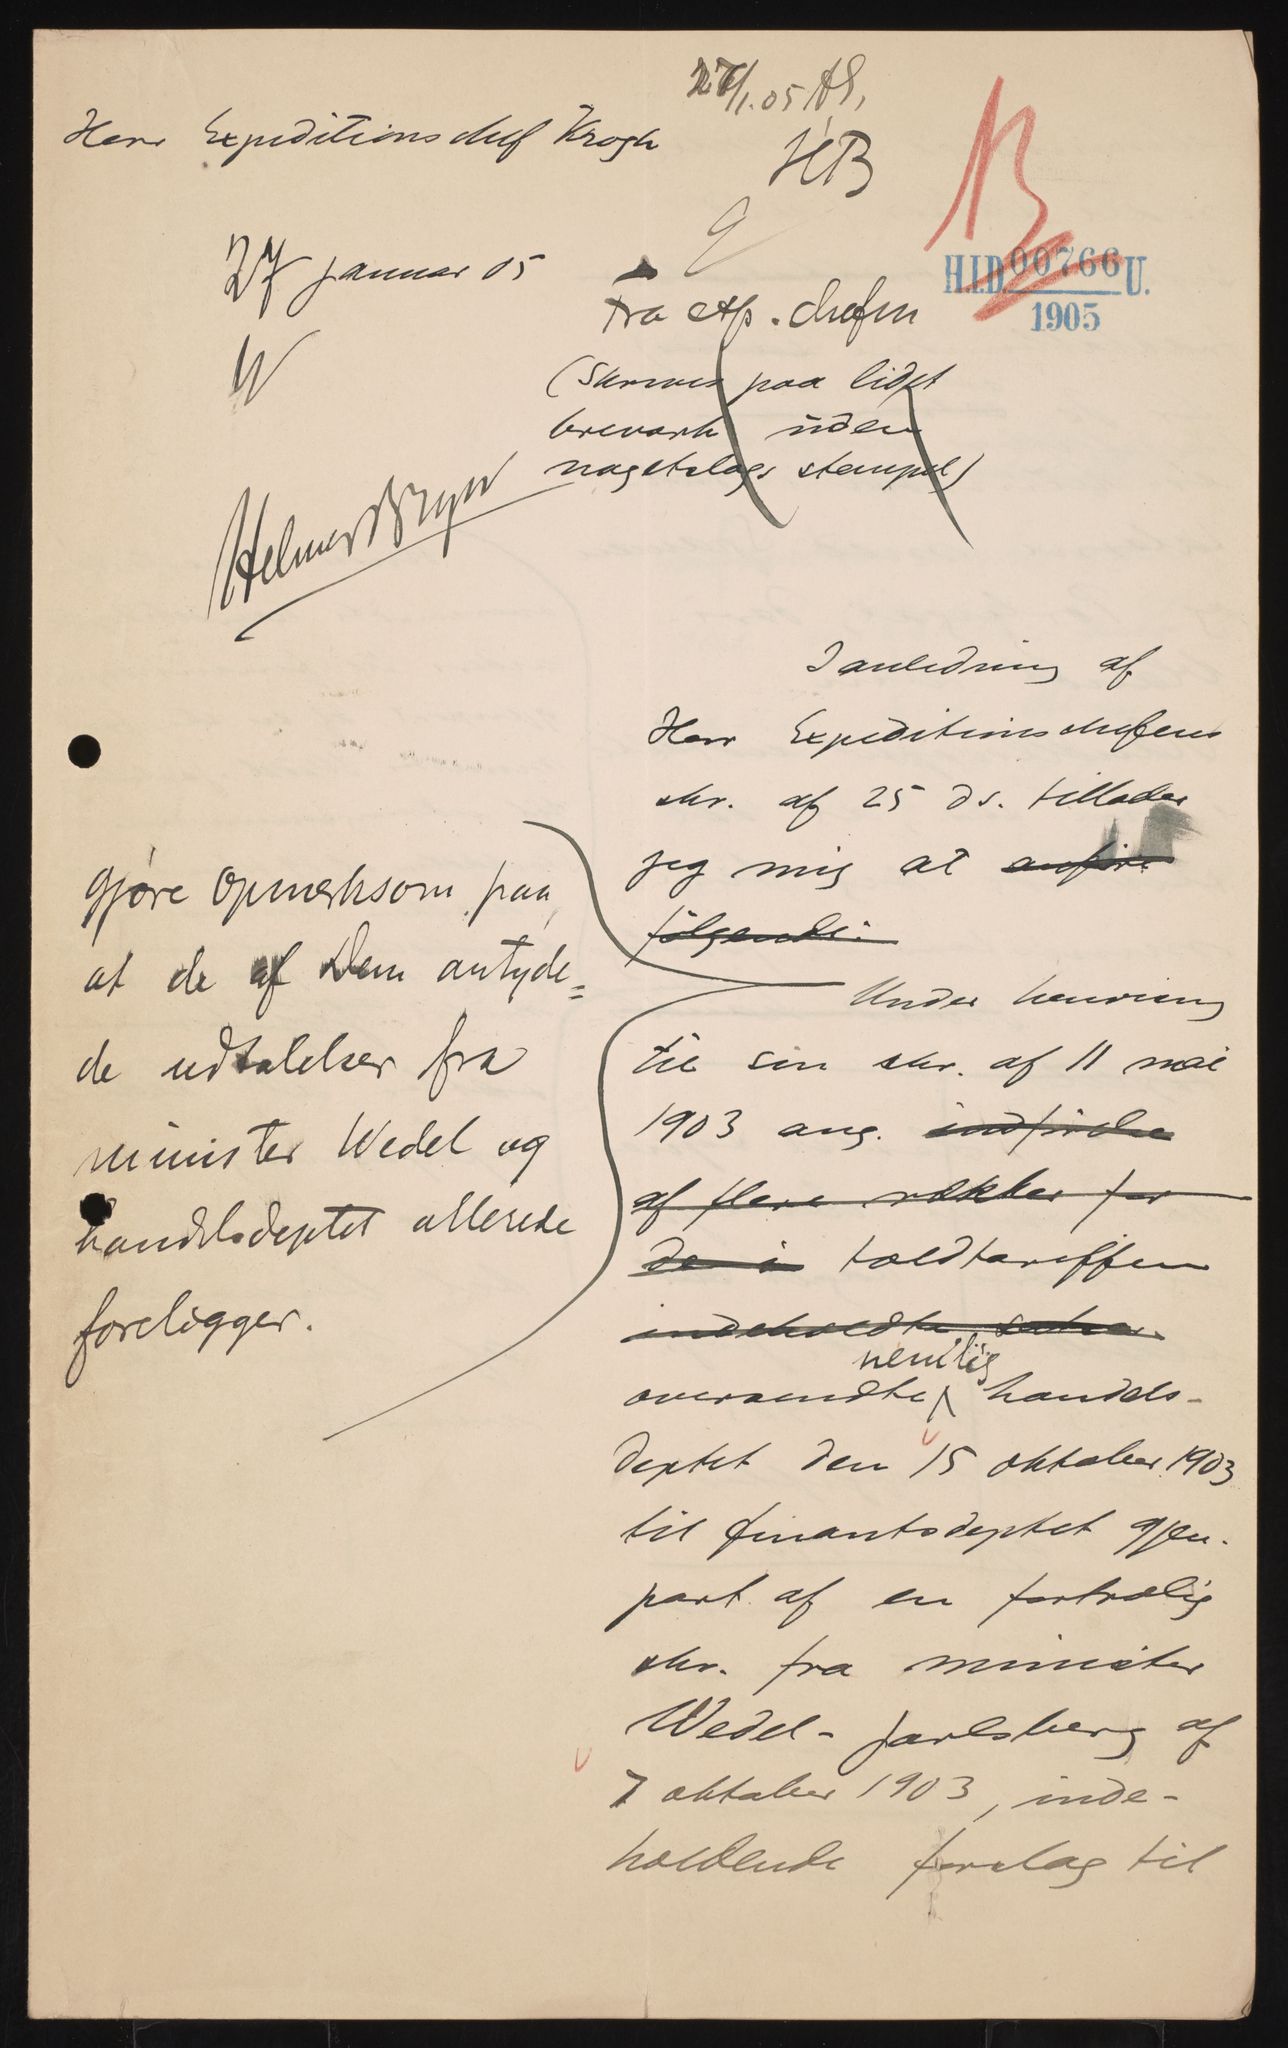 27/1.05 AS,
Herr Expeditionschef Krogh
HB
B
H.I.D. 00766 U.
1905
27 januar 05
Fra exp. chefen
(Skrives paa lidet
brevark uden
nogetslags stempel)
Helmer Bryn
I anledning af
Herr Expeditionschefens
skr. af 25 ds. tillader
jeg mig at anføre
følgende:
gjøre opmerksom paa,
at de af Dem antyde=
de udtalelser fra
minister Wedel og
handelsdeptet allerede
foreligger.
Under henvisning
til sin skr. af 11 mai
1903 ang. indførelse
af flere rækker for
de i toldtariffen
indeholdte satser
oversendte nemlig handels-
deptet den 15 oktober 1903
til finantsdeptet gjen-
part af en fortrolig
skr. fra minister
Wedel-Jarlsberg af
7 oktober 1903, inde-
holdende forslag til